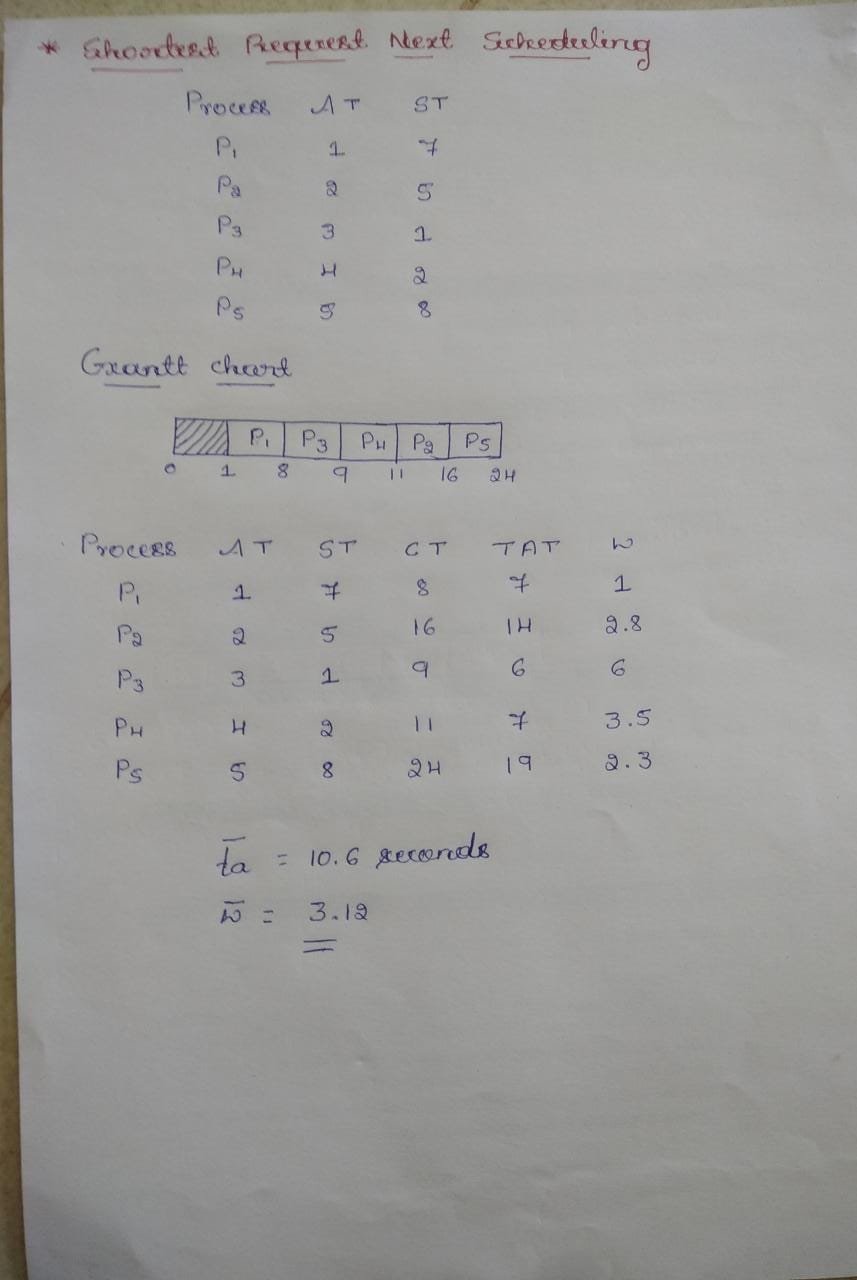 * Shortest Request Next Scheduling
Process AT ST
P1 1 7
P2 2 5
P3 3 1
P4 4 2
P5 5 8
Gxantt chart
P1 P3 P4 P2 P5
0 1 8 9 11 16 24
Process AT ST CT TAT W
P1 1 7 8 7 1
P2 2 5 16 14 2.8
P3 3 1 9 6 6
P4 4 2 11 7 3.5
P5 5 8 24 19 2.3
t̅a̅ = 10.6 seconds
w̅ = 3.12